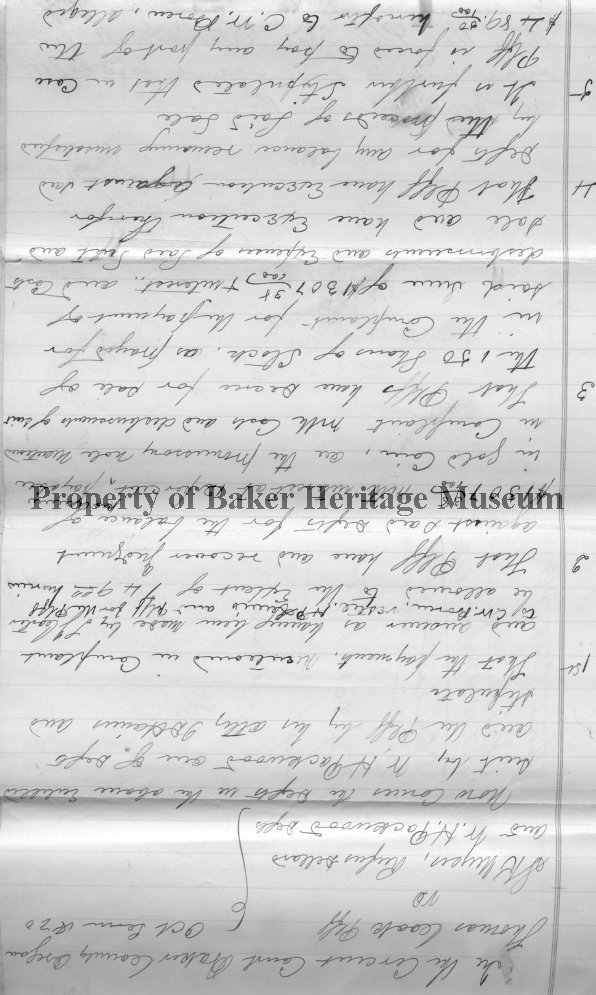 In the Circuit Court Baker County Oregon
Thomas Cooke Plff Oct Term 1870
vs
S B Myers, Rufus Dellard
and W. H. Packwood Defts
Now Comes the Defts in the above Entitled
suit by W. H. Packwood one of Defts
and the Plff by his atty I D Haines and
stipulate
1st That the payments mentioned in Complaint
and answer as having been made by
to C. W. Bonen, and Plff for the Plff
be allowed to the Extent of
2 That Plff have and recover Judgment
against said Defts for the balance of
$1307 38/100 with interest at per cent, payable
in gold Coin, on the promissory note mentioned
in Complaint with Costs and disbursements of suit
3 That Plffs have Decree for sale of
the 150 Shares of Stock, as prayed for
in the Complaint for the payment of
said sum of $1307 38/100 & interest, and Costs
disbursements and Expenses of said Suit and
sale and have Execution therefor
4 That Plff have Execution against said
Defts for any balance remaining unsatisfied
by the proceeds of said Sale
5 It is further Stipulated that in Case
Plff is forced to pay any part of the
$489.50/100 to C. W. Bonen, alleged
Property of Baker Heritage Museum